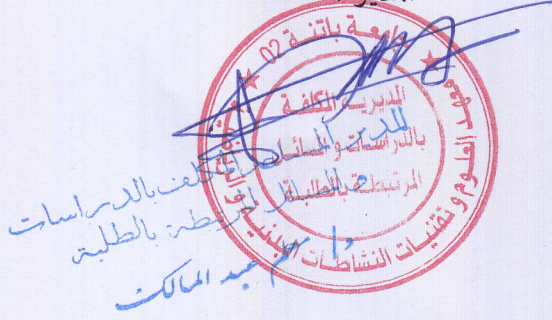 جامعة باتنة 02
معهد العلوم و تقنيات النشاطات البدنية و
المديرية المكلفة
بالدراسات و المسائل
المرتبطة بالطلبة
المدير المكلف بالدراسات
والمسائل المرتبطة بالطلبة
عبد المالك